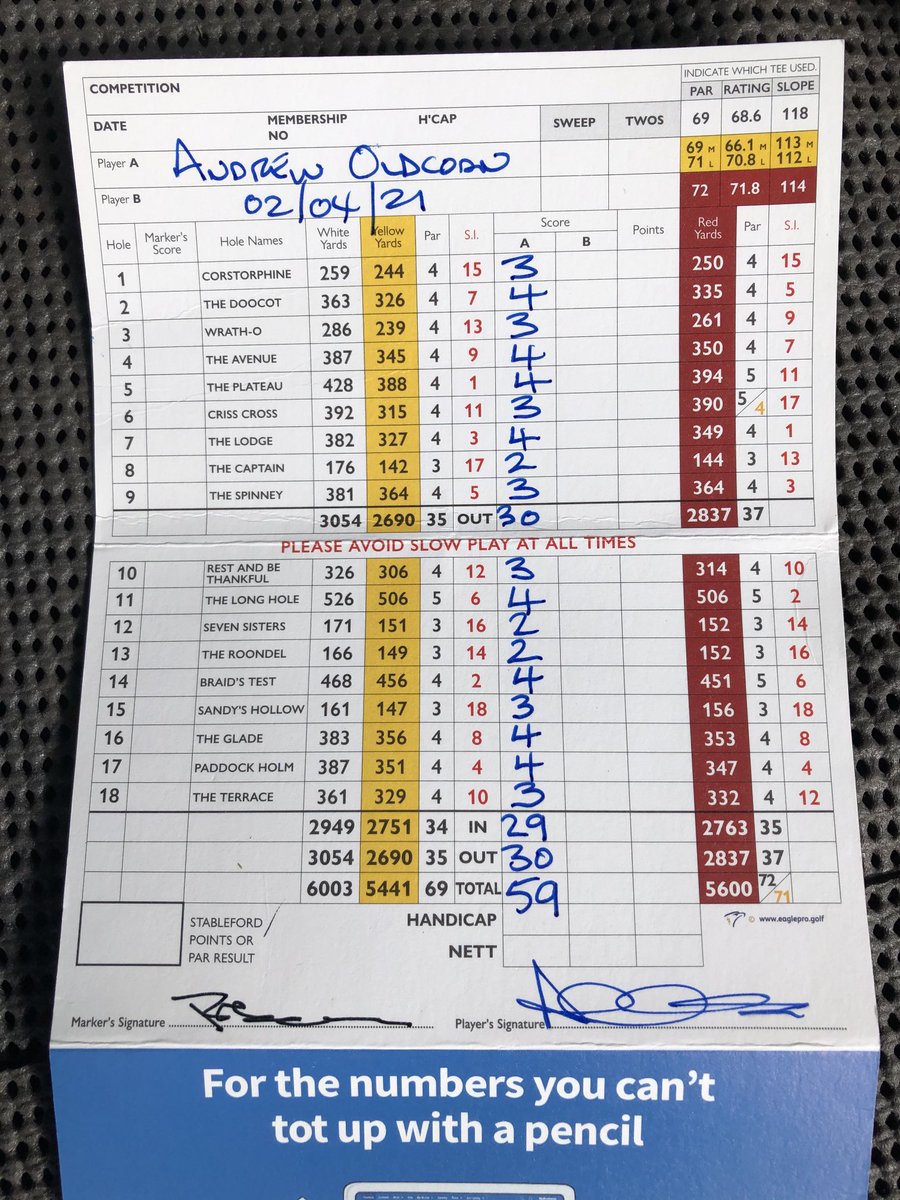 INDICATE WHICH TEE USED.
COMPETITION PAR RATING SLOPE
DATE MEMBERSHIP NO H'CAP SWEEP TWOS 69 68.6 118
Player A ANDREW OLDCORN 69 M 66.1 M 113 M
71 L 70.8 L 112 L
Player B 02/04/21 72 71.8 114
Hole Marker's Score Hole Names White Yards Yellow Yards Par S.I. Score A B Points Red Yards Par S.I.
1 CORSTORPHINE 259 244 4 15 3 250 4 15
2 THE DOOCOT 363 326 4 7 4 335 4 5
3 WRATH-O 286 239 4 13 3 261 4 9
4 THE AVENUE 387 345 4 9 4 350 4 7
5 THE PLATEAU 428 388 4 1 4 394 5 11
6 CRISS CROSS 392 315 4 11 3 390 5/4 17
7 THE LODGE 382 327 4 3 4 349 4 1
8 THE CAPTAIN 176 142 3 17 2 144 3 13
9 THE SPINNEY 381 364 4 5 3 364 4 3
3054 2690 35 OUT 30 2837 37
PLEASE AVOID SLOW PLAY AT ALL TIMES
10 REST AND BE THANKFUL 326 306 4 12 3 314 4 10
11 THE LONG HOLE 526 506 5 6 4 506 5 2
12 SEVEN SISTERS 171 151 3 16 2 152 3 14
13 THE ROONDEL 166 149 3 14 2 152 3 16
14 BRAID'S TEST 468 456 4 2 4 451 5 6
15 SANDY'S HOLLOW 161 147 3 18 3 156 3 18
16 THE GLADE 383 356 4 8 4 353 4 8
17 PADDOCK HOLM 387 351 4 4 4 347 4 4
18 THE TERRACE 361 329 4 10 3 332 4 12
2949 2751 34 IN 29 2763 35
3054 2690 35 OUT 30 2837 37
6003 5441 69 TOTAL 59 5600 72/71
STABLEFORD POINTS OR PAR RESULT
HANDICAP
© www.eaglepro.golf
NETT
Marker's Signature
Player's Signature
For the numbers you can't
tot up with a pencil